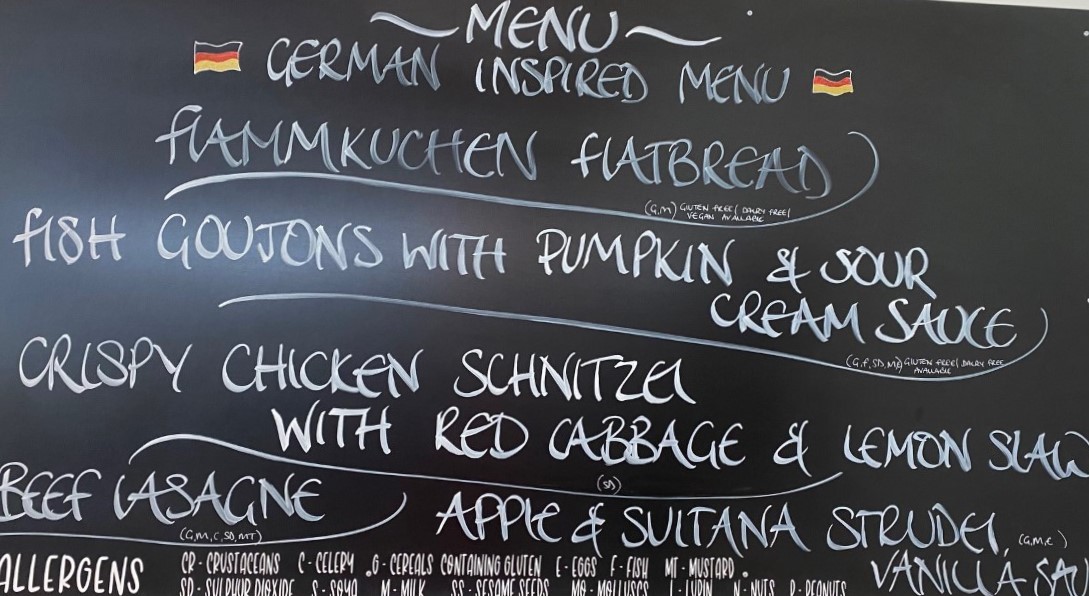 MENU
GERMAN INSPIRED MENU
FLAMMKUCHEN FLATBREAD
(G,M) GLUTEN FREE/ DAIRY FREE/
VEGAN AVAILABLE
FISH GOUJONS WITH PUMPKIN & SOUR
CREAM SAUCE
(G,F,SD,M) GLUTEN FREE/ DAIRY FREE
AVAILABLE
CRISPY CHICKEN SCHNITZEL
WITH RED CABBAGE & LEMON SLAW
(SD)
BEEF LASAGNE
(G,M,C,SD,MT)
APPLE & SULTANA STRUDEL,
(G,M,E)
VANILLA SAU
ALLERGENS
CR - CRUSTACEANS C - CELERY G - CEREALS CONTAINING GLUTEN E - EGGS F - FISH MT - MUSTARD
SD - SULPHUR DIOXIDE S - SOYA M - MILK SS - SESAME SEEDS MO - MOLLUSCS L - LUPIN N - NUTS P - PEANUTS